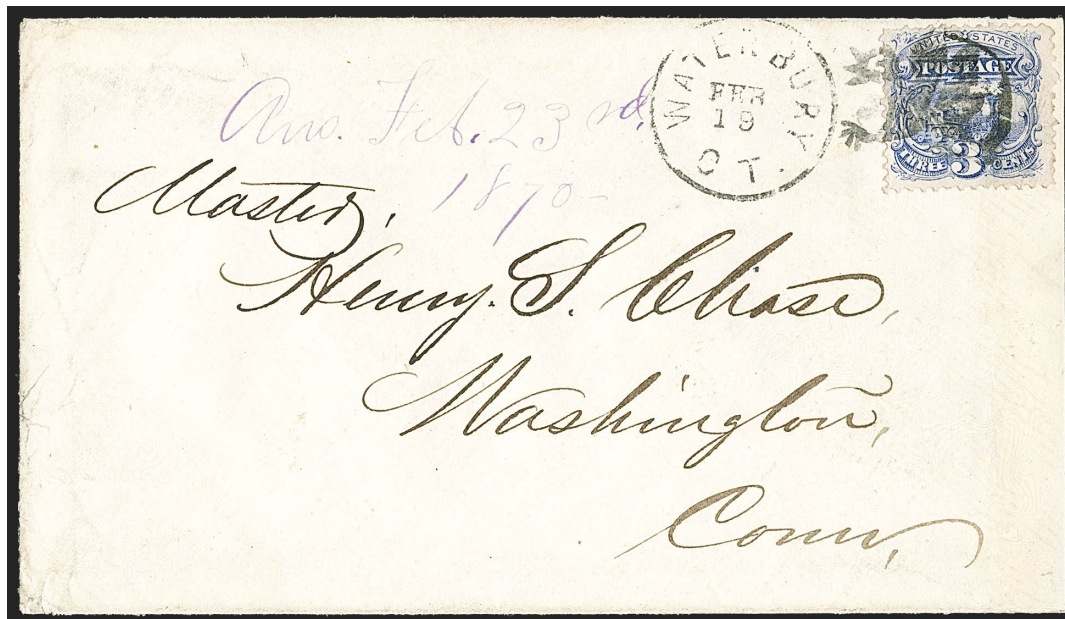 Ans. Feb. 23rd,
1870-
WATERBURY
FEB
19
CT.
UNITED STATES
POSTAGE
THREE 3 CENTS
Master,
Henry. S. Chase,
Washington,
Conn,